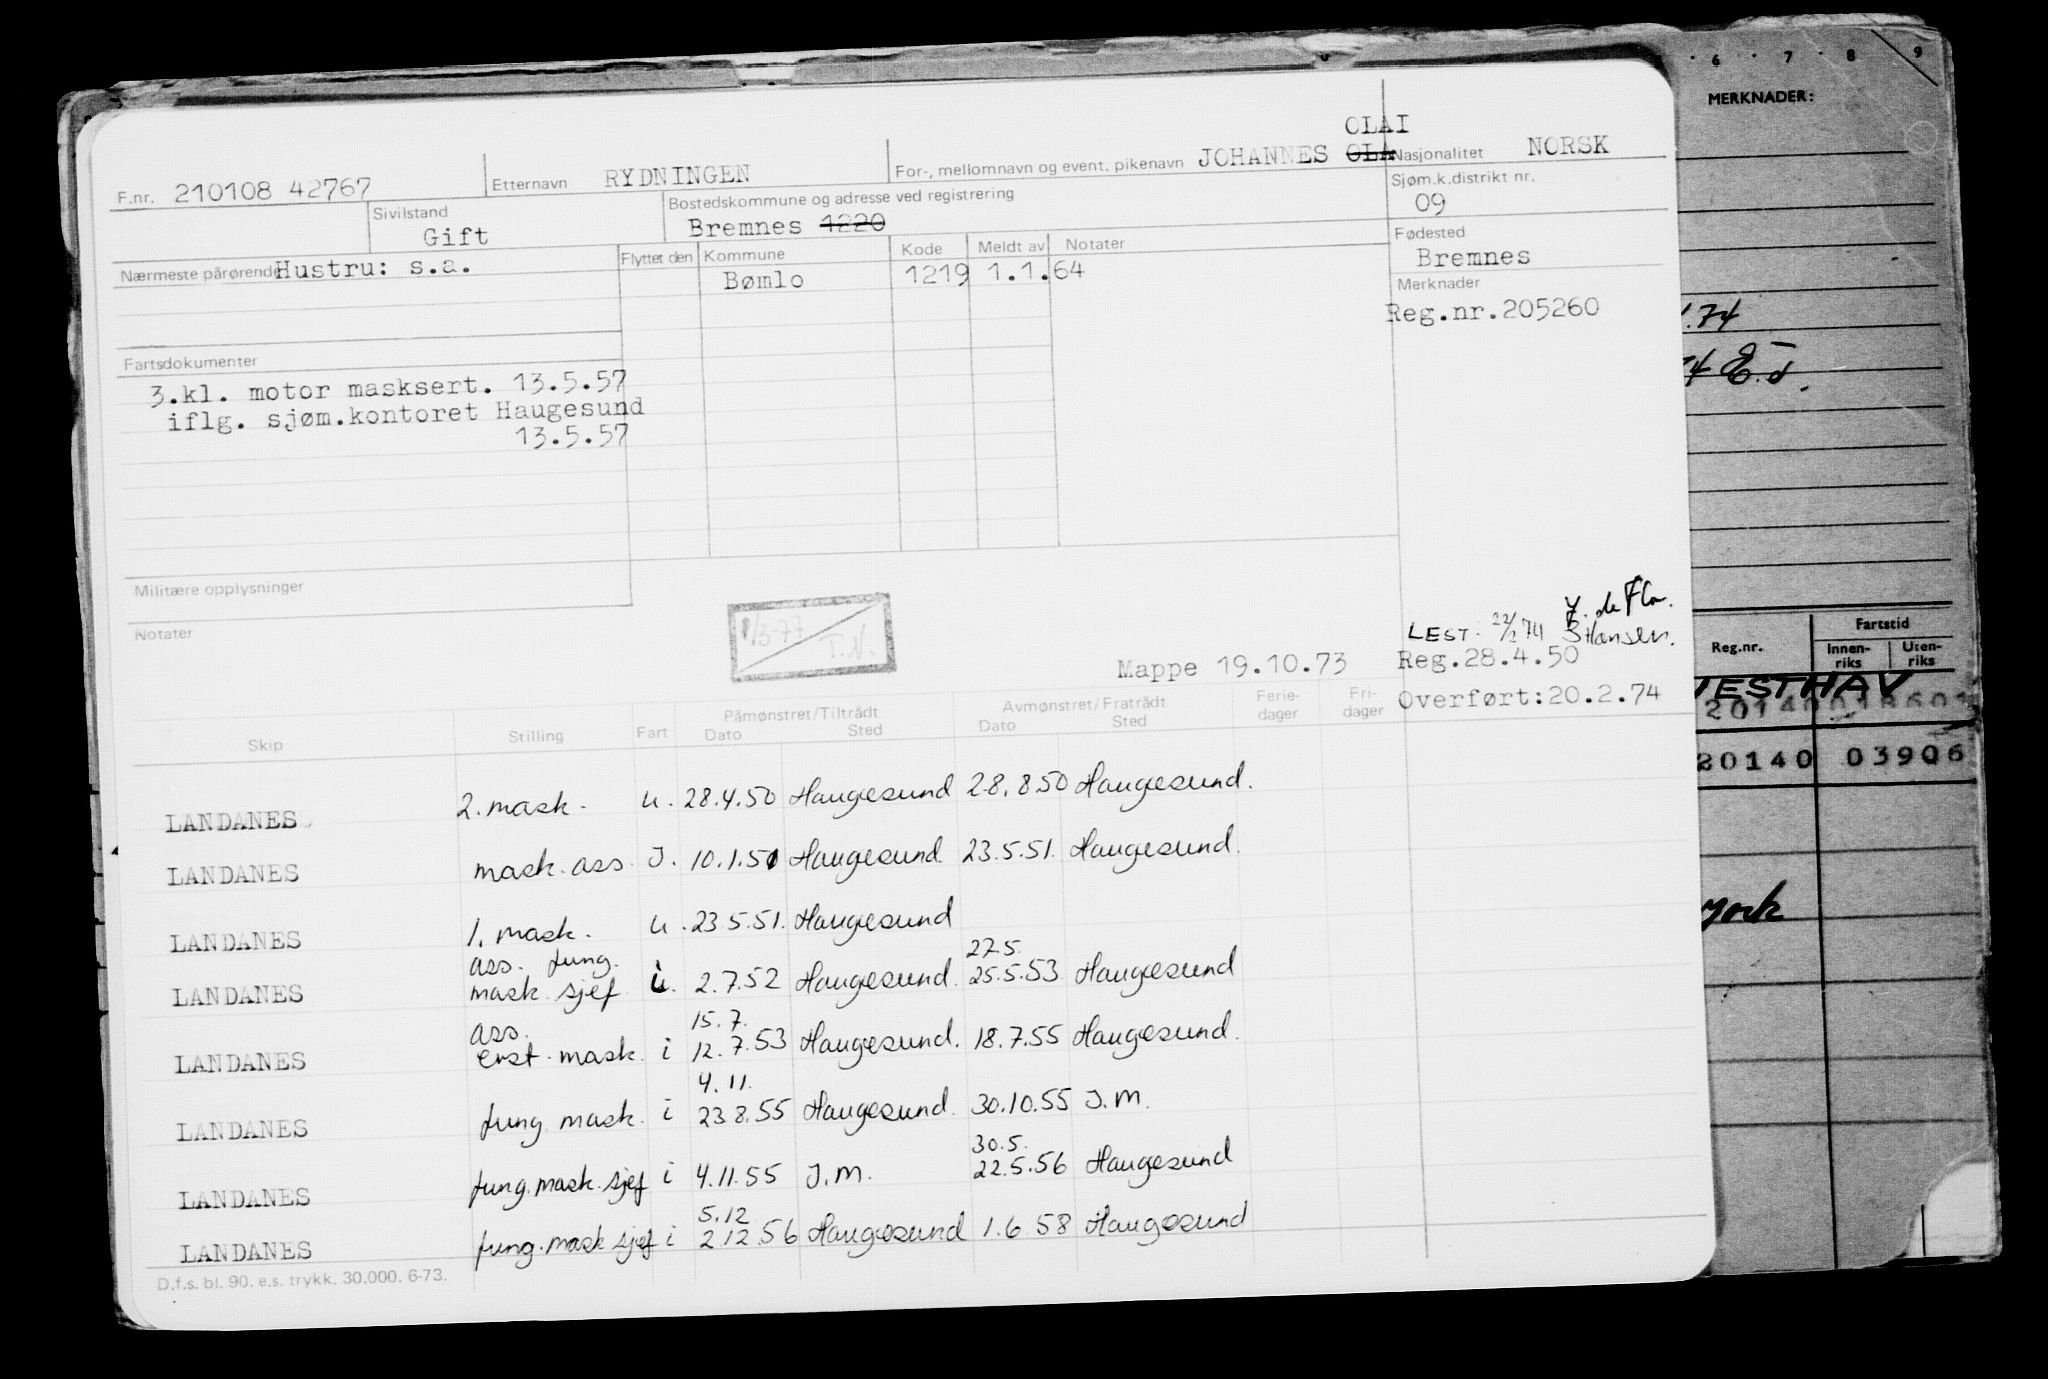 F.nr. 210108 42767 Etternavn RYDNINGEN For-, mellomnavn og event. pikenavn JOHANNES OLA OLAI Nasjonalitet NORSK
Sivilstand Gift
Bostedskommune og adresse ved registrering Bremnes 1220
Sjøm.k.distrikt nr. 09
Nærmeste pårørende Hustru: s.a.
Flyttet den Kommune Kode Meldt av Notater
Bømlo 1219 1.1.64
Fødested
Bremnes
Merknader
Reg.nr.205260
Fartsdokumenter
3.kl. motor masksert. 13.5.57
iflg. sjøm.kontoret Haugesund
13.5.57
Militære opplysninger
Notater
1/3-77
T.N.
LEST: 22/2 74
Hansen.
Mappe 19.10.73
Reg.28.4.50
Overført:20.2.74
Skip Stilling Fart Påmønstret/Tiltrådt Dato Sted Avmønstret/Fratrådt Dato Sted Ferie-dager Fri-dager
LANDANES 2. mask. u. 28.4.50 Haugesund 28.8.50 Haugesund.
LANDANES mask. ass. I. 10.1.51 Haugesund 23.5.51. Haugesund.
LANDANES 1. mask. u. 23.5.51. Haugesund
ass. fung. 27.5.
LANDANES mask. sjef u. 2.7.52 Haugesund. 25.5.53 Haugesund
ass. 15.7.
LANDANES erst. mask. i 12.7.53 Haugesund. 18.7.55 Haugesund.
4.11.
LANDANES fung. mask. i 23.8.55 Haugesund. 30.10.55 I.M.
30.5.
LANDANES fung. mask. sjef i 4.11.55 I.M. 22.5.56 Haugesund
5.12
LANDANES fung. mask. sjef i 2.12.56 Haugesund 1.6.58 Haugesund
D.f.s. bl. 90. e.s. trykk. 30.000. 6-73.
6 7 8 9
MERKNADER:
.74
E.d.
Reg.nr. Fartstid
Innen-riks Uten-riks
VESTHAV
20140
20140 03906